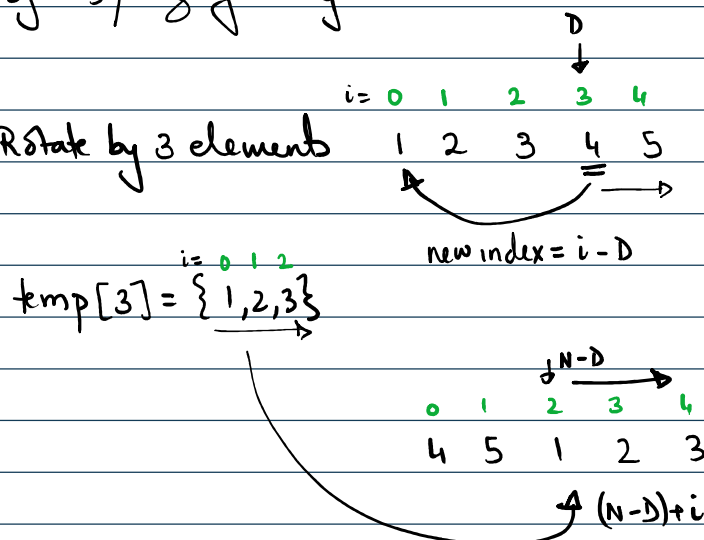 D
i= 0 1 2 3 4
Rotate by 3 elements 1 2 3 4 5
new index = i - D
i= 0 1 2
temp[3] = {1,2,3}
N-D
0 1 2 3 4
4 5 1 2 3
(N-D)+i